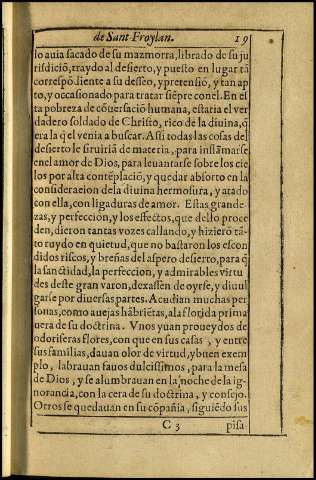 de Sant Froylan. 19
lo auia sacado de su mazmorra, librado de su ju
risdiciõ, traydo al desierto, y puesto en lugar tã
correspõdiente a su desseo, y pretensiõ, y tan ap
to, y occasionado para tratar siẽpre con el. En es
ta pobreza de cõuersaciõ humana, estaria el ver
dadero soldado de Christo, rico de la diuina, q̃
era la q̃ el venia a buscar. Assi todas las cosas del
desierto le siruiriã de materia, para inflãmarse
en el amor de Dios, para leuantarse sobre los cie
los por alta contẽplaciõ, y quedar absorto en la
consideracion de la diuina hermosura, y atado
con ella, con ligaduras de amor. Estas grande-
zas, y perfeccion, y los effectos, que dello proce
den, dieron tantas vozes callando, y hizierõ tã-
to ruydo en quietud, que no bastaron los escon
didos riscos, y breñas del aspero desierto, para q̃
la sanctidad, la perfeccion, y admirables virtu
des deste gran varon, dexassen de oyrse, y diuul
garse por diuersas partes. Acudian muchas per
sonas, como auejas hãbriẽtas, a la florida prima
uera de su doctrina. Vnos yuan proueydos de
odoriferas flores, con que en sus casas, y entre
sus familias, dauan olor de virtud, y buen exem
plo, labrauan fauos dulcissimos, para la mesa
de Dios, y se alumbrauan en la noche de la ig-
norancia, con la cera de su doctrina, y consejo.
Otros se quedauan en su cõpañia, siguiẽdo sus
C 3 pisa-